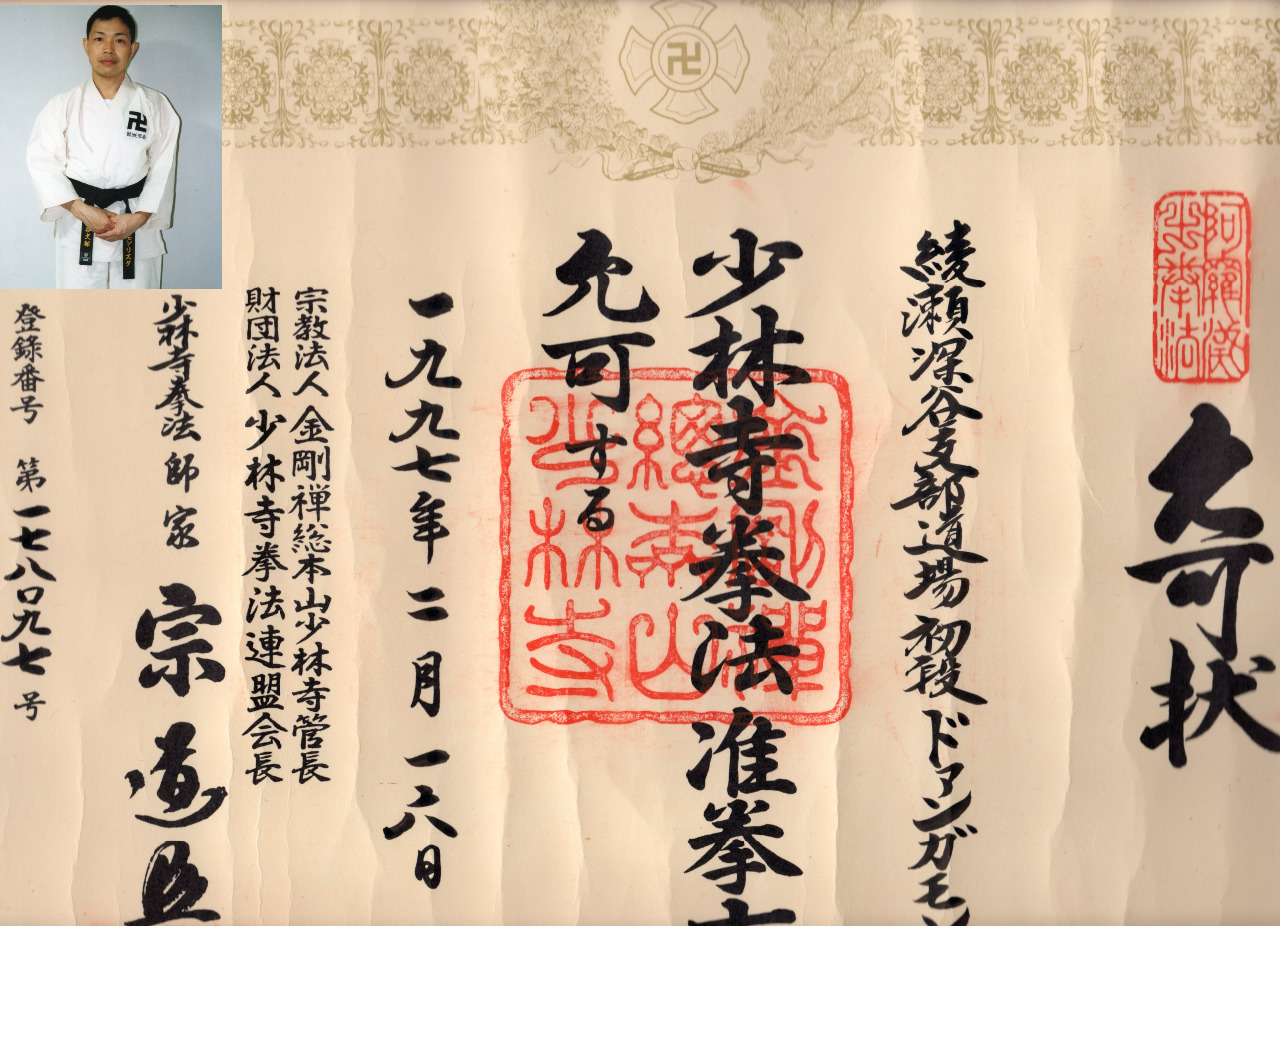 允可状
綾瀬深谷支部道場 初段 ドアンガモン
少林寺拳法 准拳士
允可する
一九九七年 二月 一六日
宗教法人 金剛禅総本山少林寺管長
財団法人 少林寺拳法連盟会長
少林寺拳法師家 宗 道臣
登録番号 第一七八〇九七号
金剛禅
總本山
少林寺